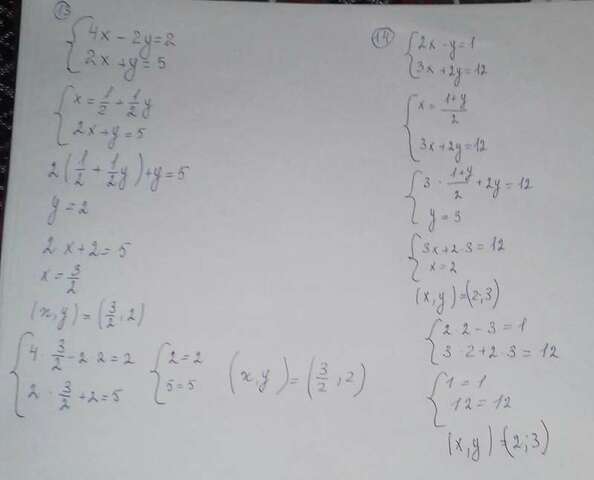 13
4x - 2y = 2
2x + y = 5
x = 1/2 + 1/2 y
2x + y = 5
2(1/2 + 1/2 y) + y = 5
y = 2
2 x + 2 = 5
x = 3/2
(x, y) = (3/2, 2)
4 · 3/2 - 2 · 2 = 2
2 · 3/2 + 2 = 5
2 = 2
5 = 5
(x, y) = (3/2, 2)
14
2x - y = 1
3x + 2y = 12
x = 1+y/2
3x + 2y = 12
3 · 1+y/2 + 2y = 12
y = 3
3x + 2·3 = 12
x = 2
(x, y) = (2; 3)
2·2 - 3 = 1
3·2 + 2·3 = 12
1 = 1
12 = 12
(x, y) = (2; 3)